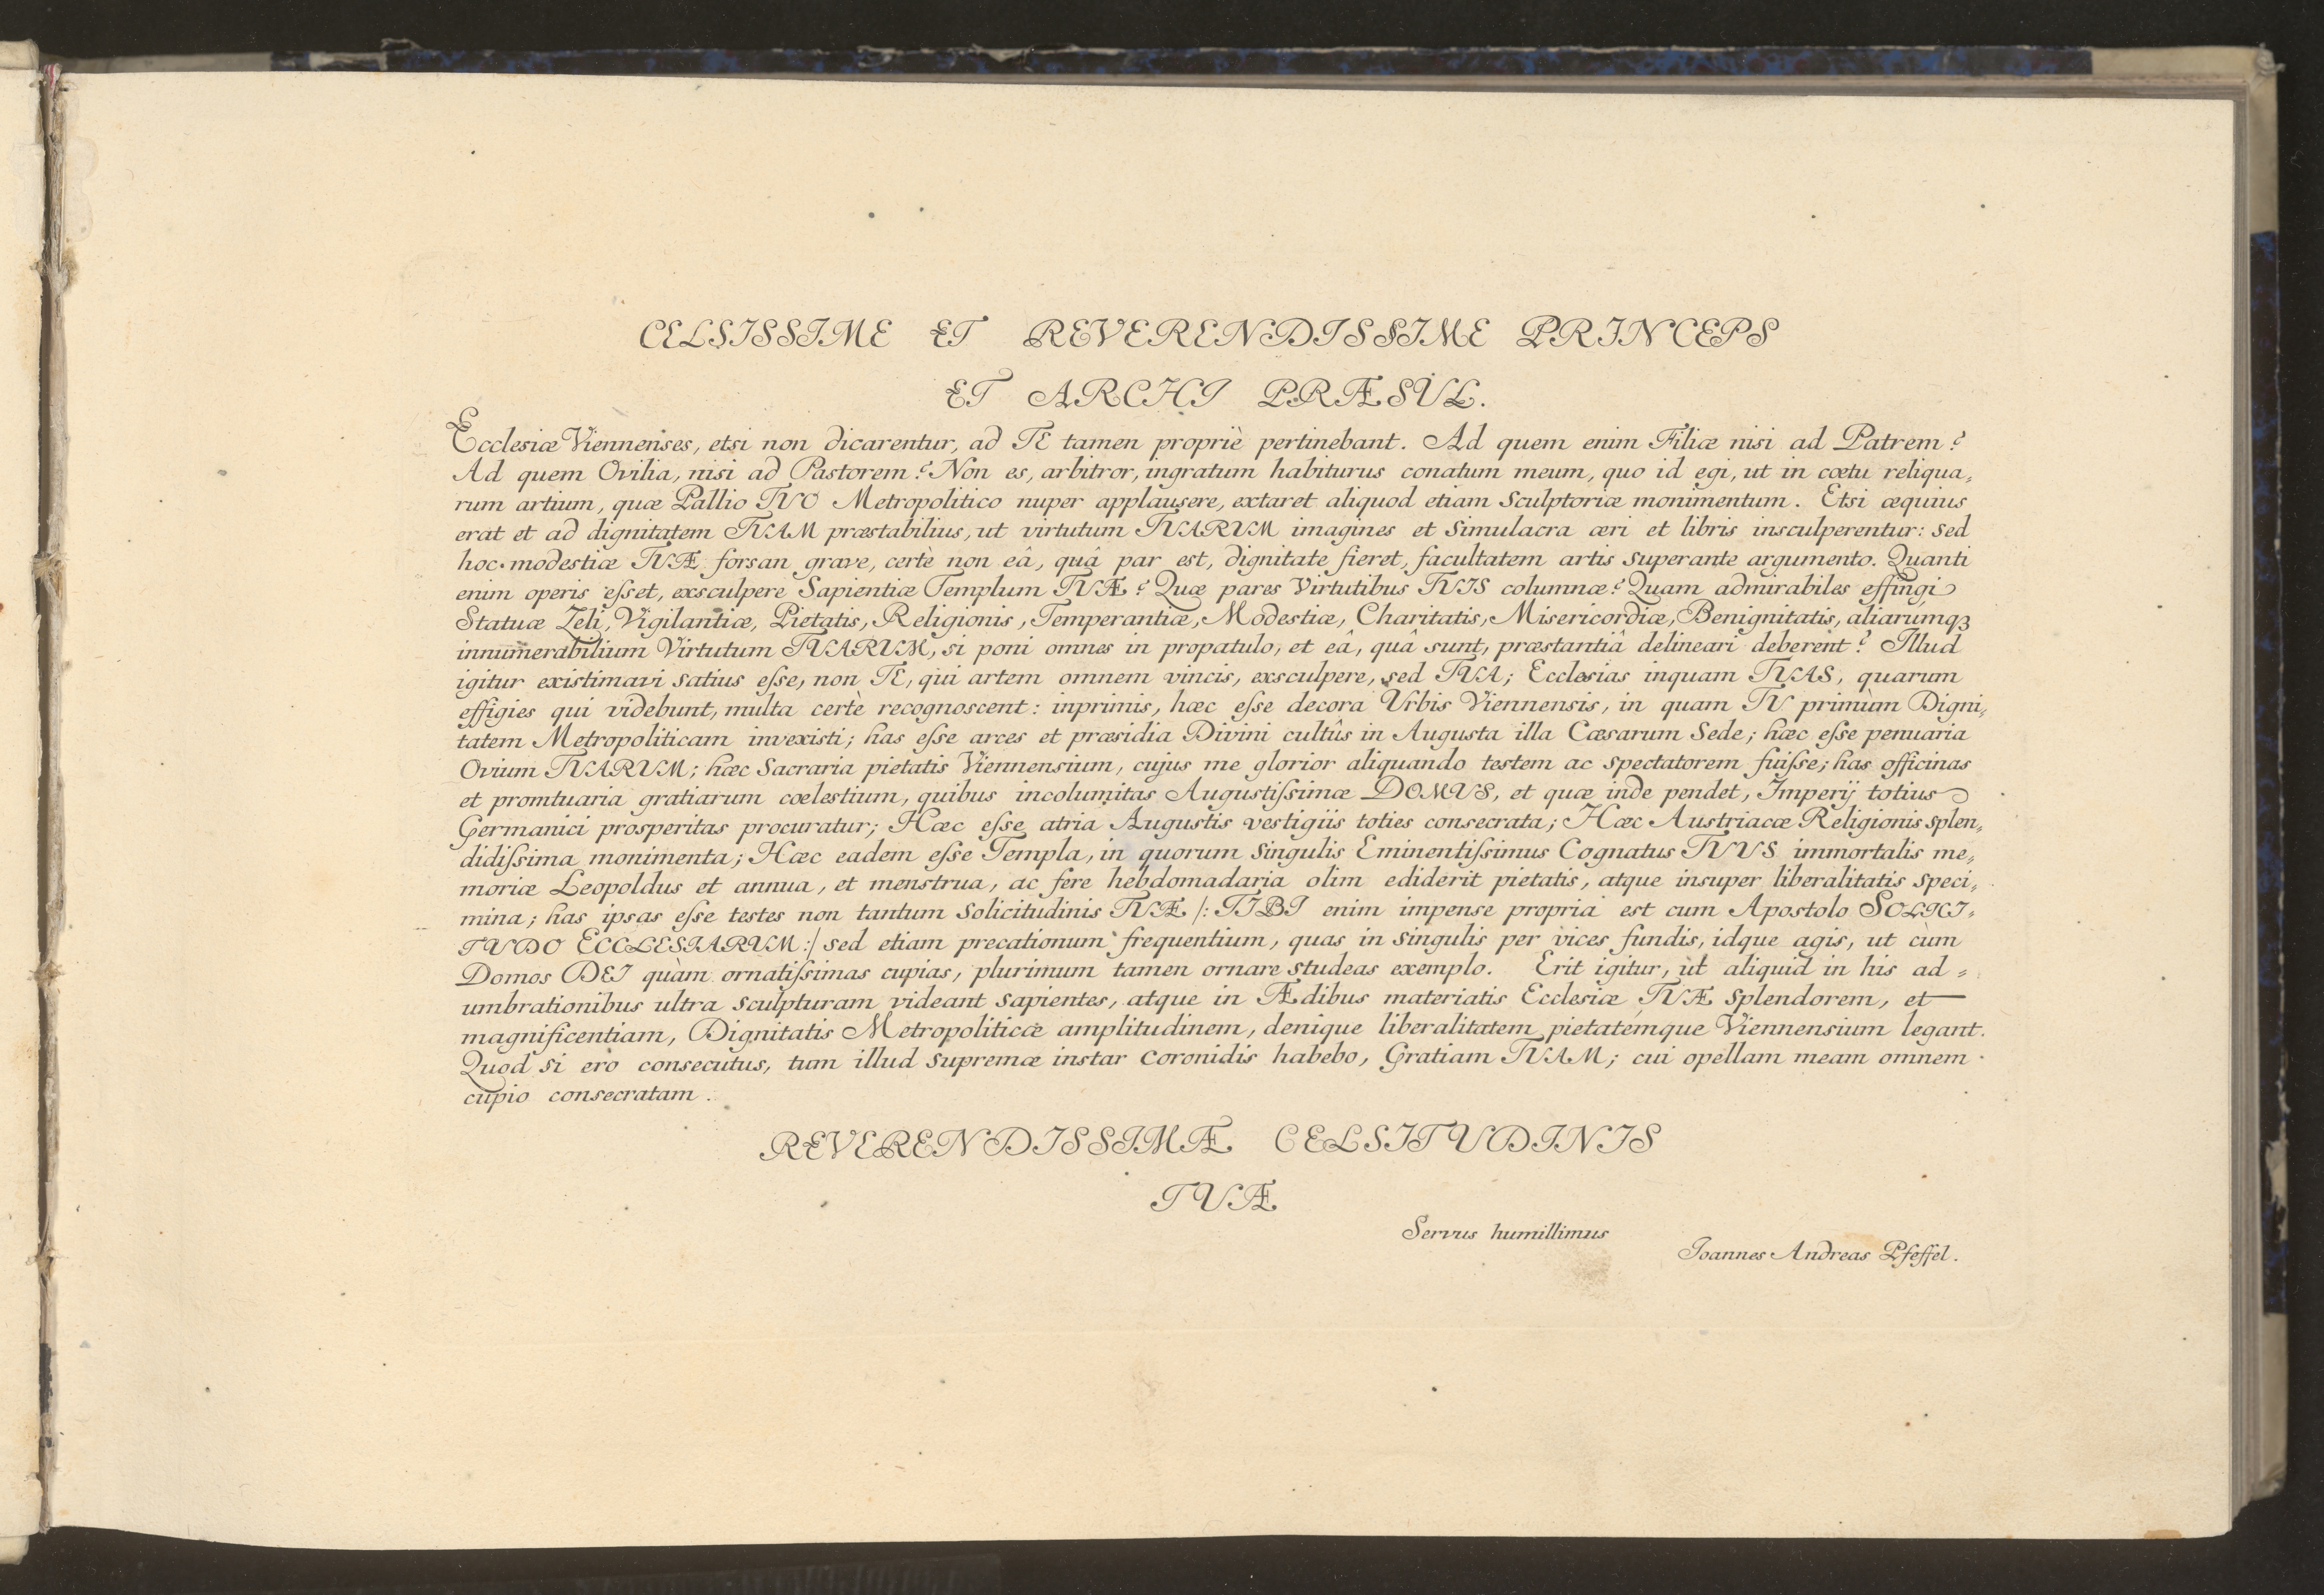 CELSISSIME ET REVERENDISSIME PRINCEPS
ET ARCHI PRÆSUL.
Ecclesiæ Viennenses, etsi non dicarentur, ad TE tamen propriè pertinebant. Ad quem enim Filiæ nisi ad Patrem?
Ad quem Ovilia, nisi ad Pastorem? Non es, arbitror, ingratum habiturus conatum meum, quo id egi, ut in cœtu reliqua,,
rum artium, quæ Pallio TUO Metropolitico nuper applausere, extaret aliquod etiam Sculptoriæ monimentum. Etsi æquius
erat et ad dignitatem TUAM præstabilius, ut virtutum TUARUM imagines et Simulacra æri et libris insculperentur: sed
hoc modestiæ TUÆ forsan grave, certè non eâ, quâ par est, dignitate fieret, facultatem artis superante argumento. Quanti
enim operis esset, exsculpere Sapientiæ Templum TUÆ? Quæ pares Virtutibus TUIS columnæ? Quam admirabiles effingi
Statuæ Zeli, Vigilantiæ, Pietatis, Religionis, Temperantiæ, Modestiæ, Charitatis, Misericordiæ, Benignitatis, aliarúmqꝫ
innumerabilium Virtutum TUARUM, si poni omnes in propatulo, et eâ, quâ sunt, præstantiâ delineari deberent? Illud
igitur existimavi satius esse, non TE, qui artem omnem vincis, exsculpere, sed TUA; Ecclesias inquam TUAS, quarum
effigies qui videbunt, multa certè recognoscent: inprimis, hæc esse decora Urbis Viennensis, in quam TU primùm Digni,,
tatem Metropoliticam invexisti; has esse arces et præsidia Divini cultûs in Augusta illa Cæsarum Sede; hæc esse penuaria
Ovium TUARUM; hæc Sacraria pietatis Viennensium, cujus me glorior aliquando testem ac spectatorem fuisse; has officinas
et promtuaria gratiarum cœlestium, quibus incolumitas Augustissimæ DOMUS, et quæ inde pendet, Imperij totius
Germanici prosperitas procuratur; Hæc esse atria Augustis vestigiis toties consecrata; Hæc Austriacæ Religionis splen,,
didissima monimenta; Hæc eadem esse Templa, in quorum Singulis Eminentissimus Cognatus TUUS immortalis me,,
moriæ Leopoldus et annua, et menstrua, ac fere hebdomadaria olim ediderit pietatis, atque insuper liberalitatis speci,,
mina; has ipsas esse testes non tantum Solicitudinis TUÆ /: TIBI enim impense propria est cum Apostolo SOLICI,,
TUDO ECCLESIARUM :/ sed etiam precationum frequentium, quas in singulis per vices fundis, idque agis, ut cùm
Domos DEI quàm ornatissimas cupias, plurimum tamen ornare studeas exemplo. Erit igitur, ut aliquid in his ad,,
umbrationibus ultra Sculpturam videant sapientes, atque in Ædibus materiatis Ecclesiæ TUÆ splendorem, et
magnificentiam, Dignitatis Metropoliticæ amplitudinem, denique liberalitatem pietatémque Viennensium legant.
Quod si ero consecutus, tum illud supremæ instar coronidis habebo, Gratiam TUAM; cui opellam meam omnem
cupio consecratam.
REVERENDISSIMÆ CELSITUDINIS
TUÆ
Servus humillimus
Joannes Andreas Pfeffel.